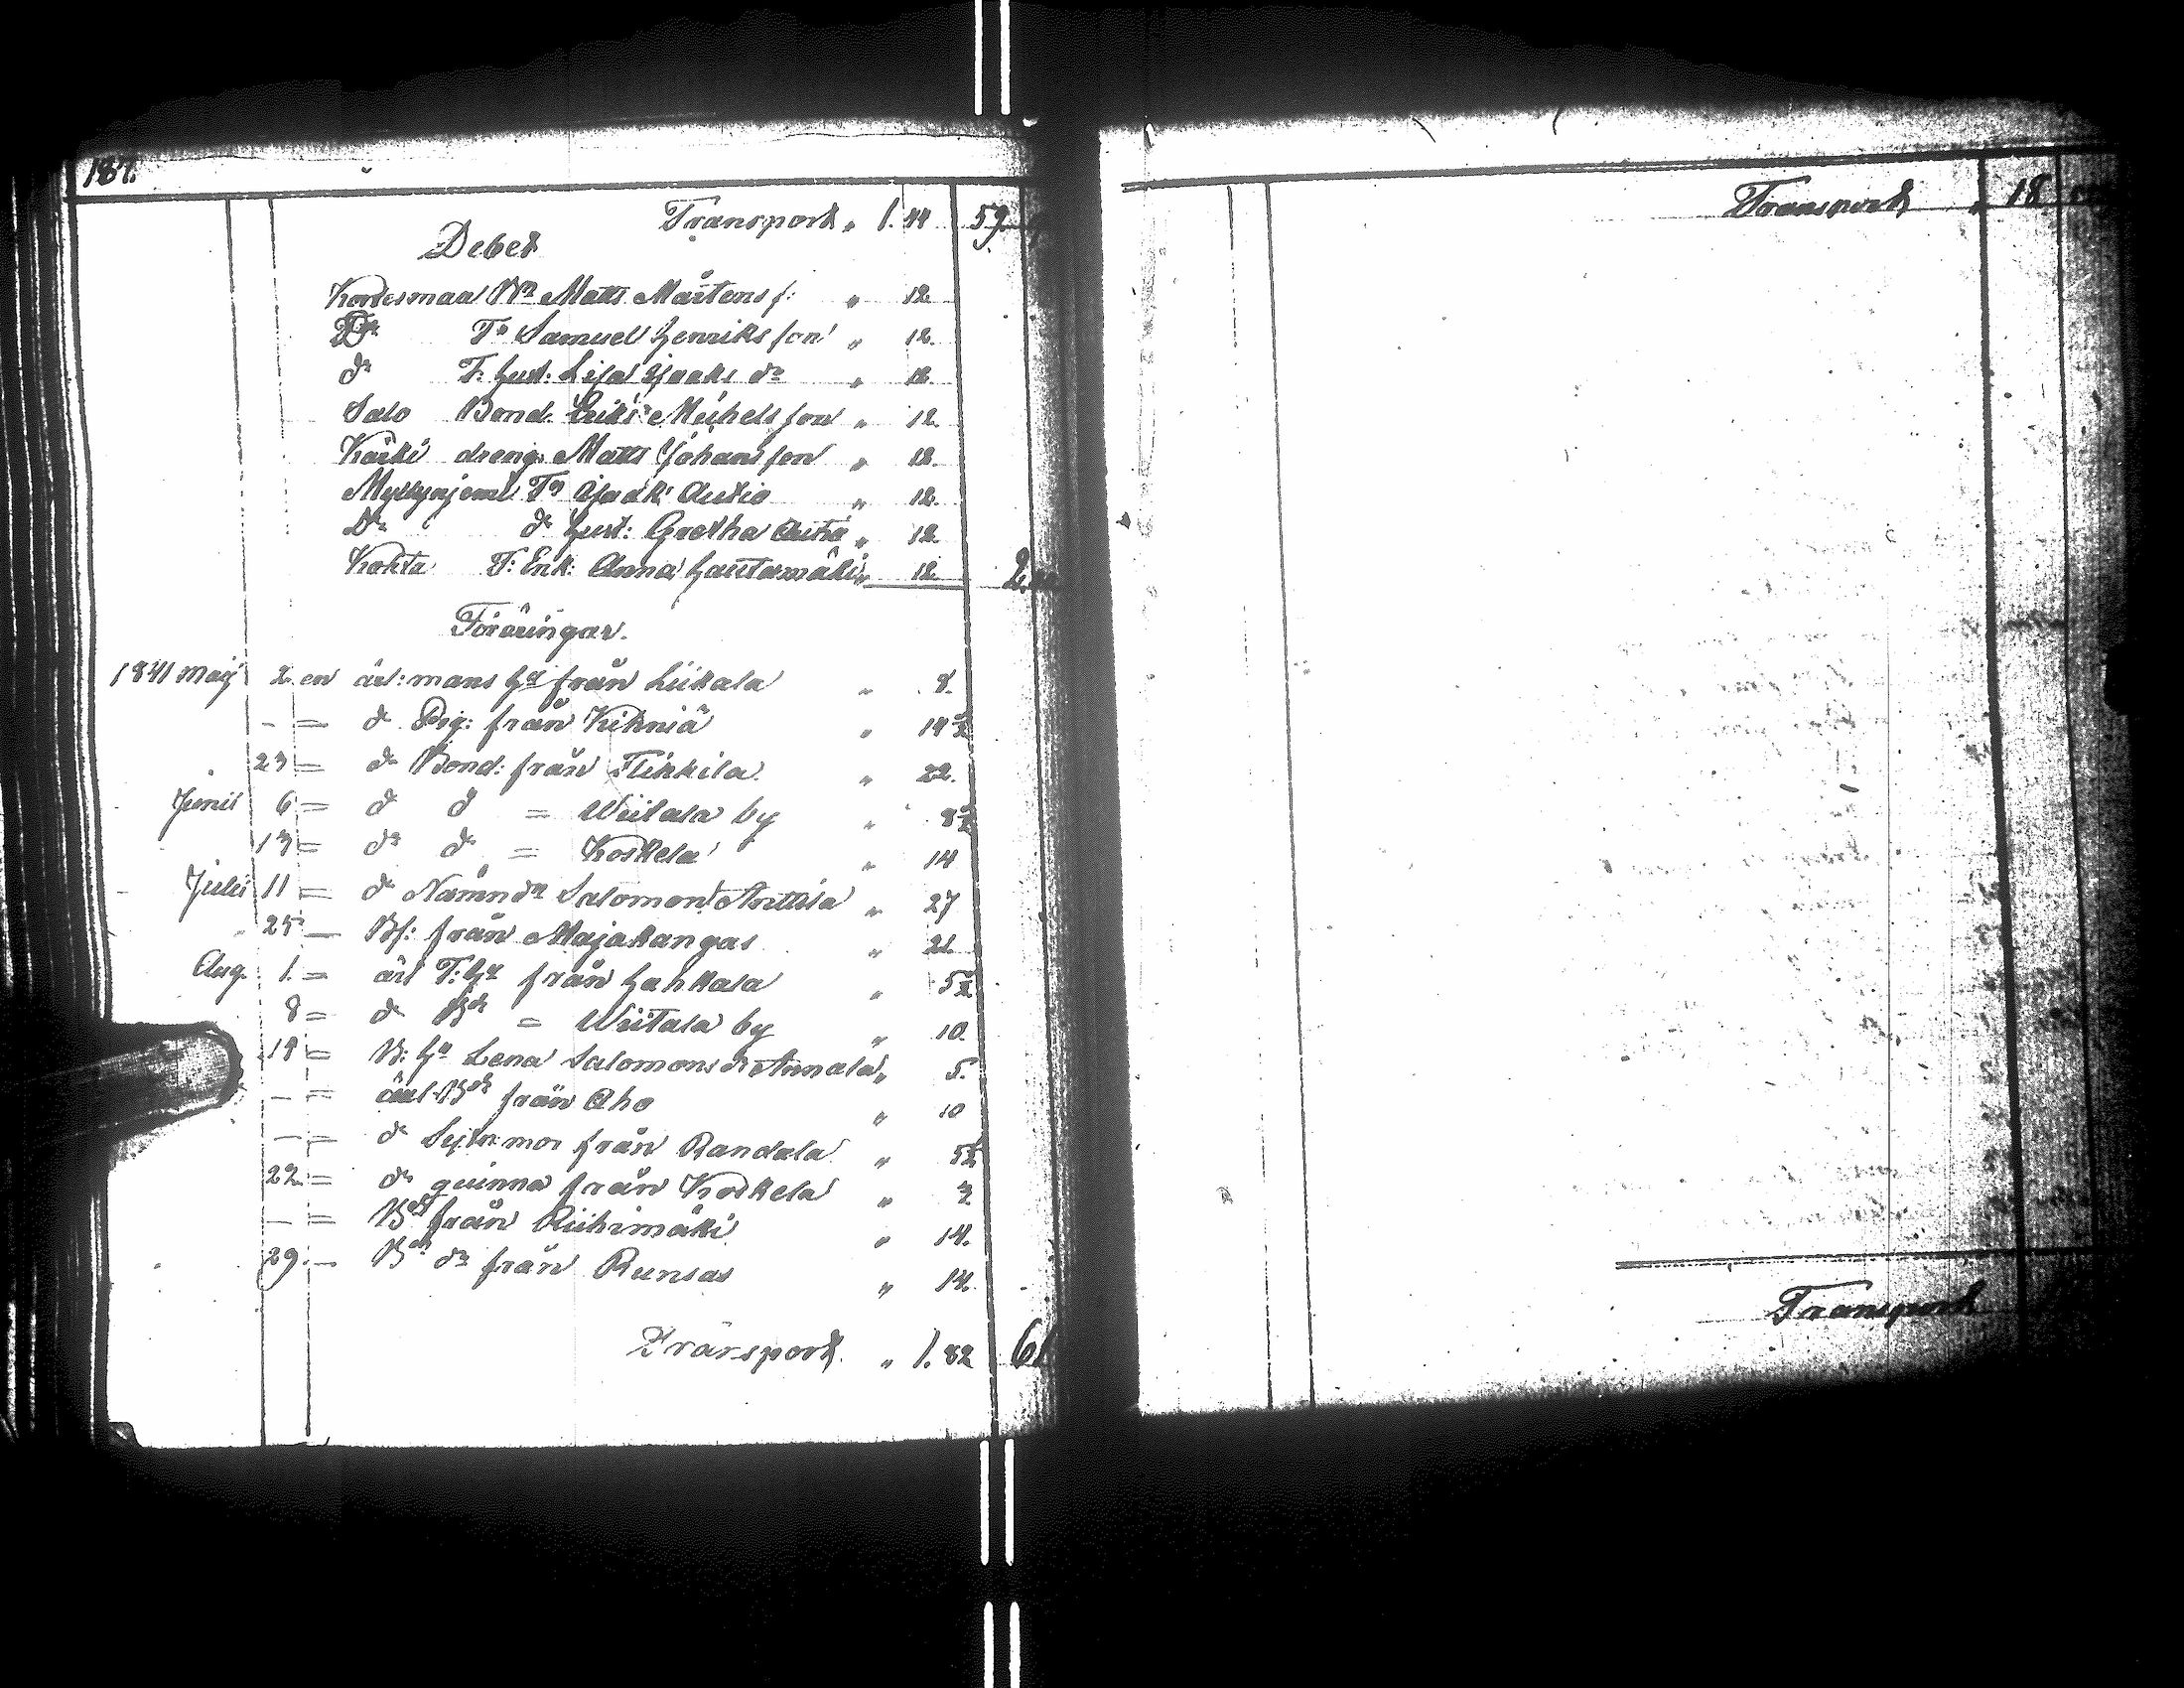 187.
Transport „ 1. 44 59.
Debet
Kordesmaa Bn Matts Mårtens f: „ 12.
Dn Tn Samuel Henriks son „ 12.
dn T: Hust: Lisa Isaaks dr „ 12.
Salo Bond. Eriks Michels son „ 12.
Karki dreng. Matts Johans son „ 12.
Myllyniemi Tn Isaak Autio „ 12.
Dn dn Hust: Gretha Autio „ 12.
Kohta T: Enk: Anna Hautamäki „ 12. 2.
Föräringar.
1841 Maij 2. en ärl: mans Hu från Liikala „ 8.
— = dn Pig: från Kihniä „ 14½
23 = dn Bond: från Tikkila „ 22.
Junii 6 = dn dn = Wiitala by „ 8½
13 = dn dn = Koskela „ 14
Julii 11 = dn Nämndm Salomon Anttila „ 27
25 — Bf: från Majakangas „ 21.
Aug. 1. = ärl T: Hu från Hahkala „ 5½
8 = dn Bdr = Wiitala by „ 10.
19 = B: Hu Lena Salomons dr Annala „ 5.
— = ärl Bdr från Aho „ 10
— = dn Sytn mor från Randala „ 5½
22 = dn quinna från Koskela „ 3.
— = Bdr från Riihimäki „ 14.
29. — Bdn dr från Runsas „ 14.
Transport. „ 1. 82 61
Transport „ 18
Transport